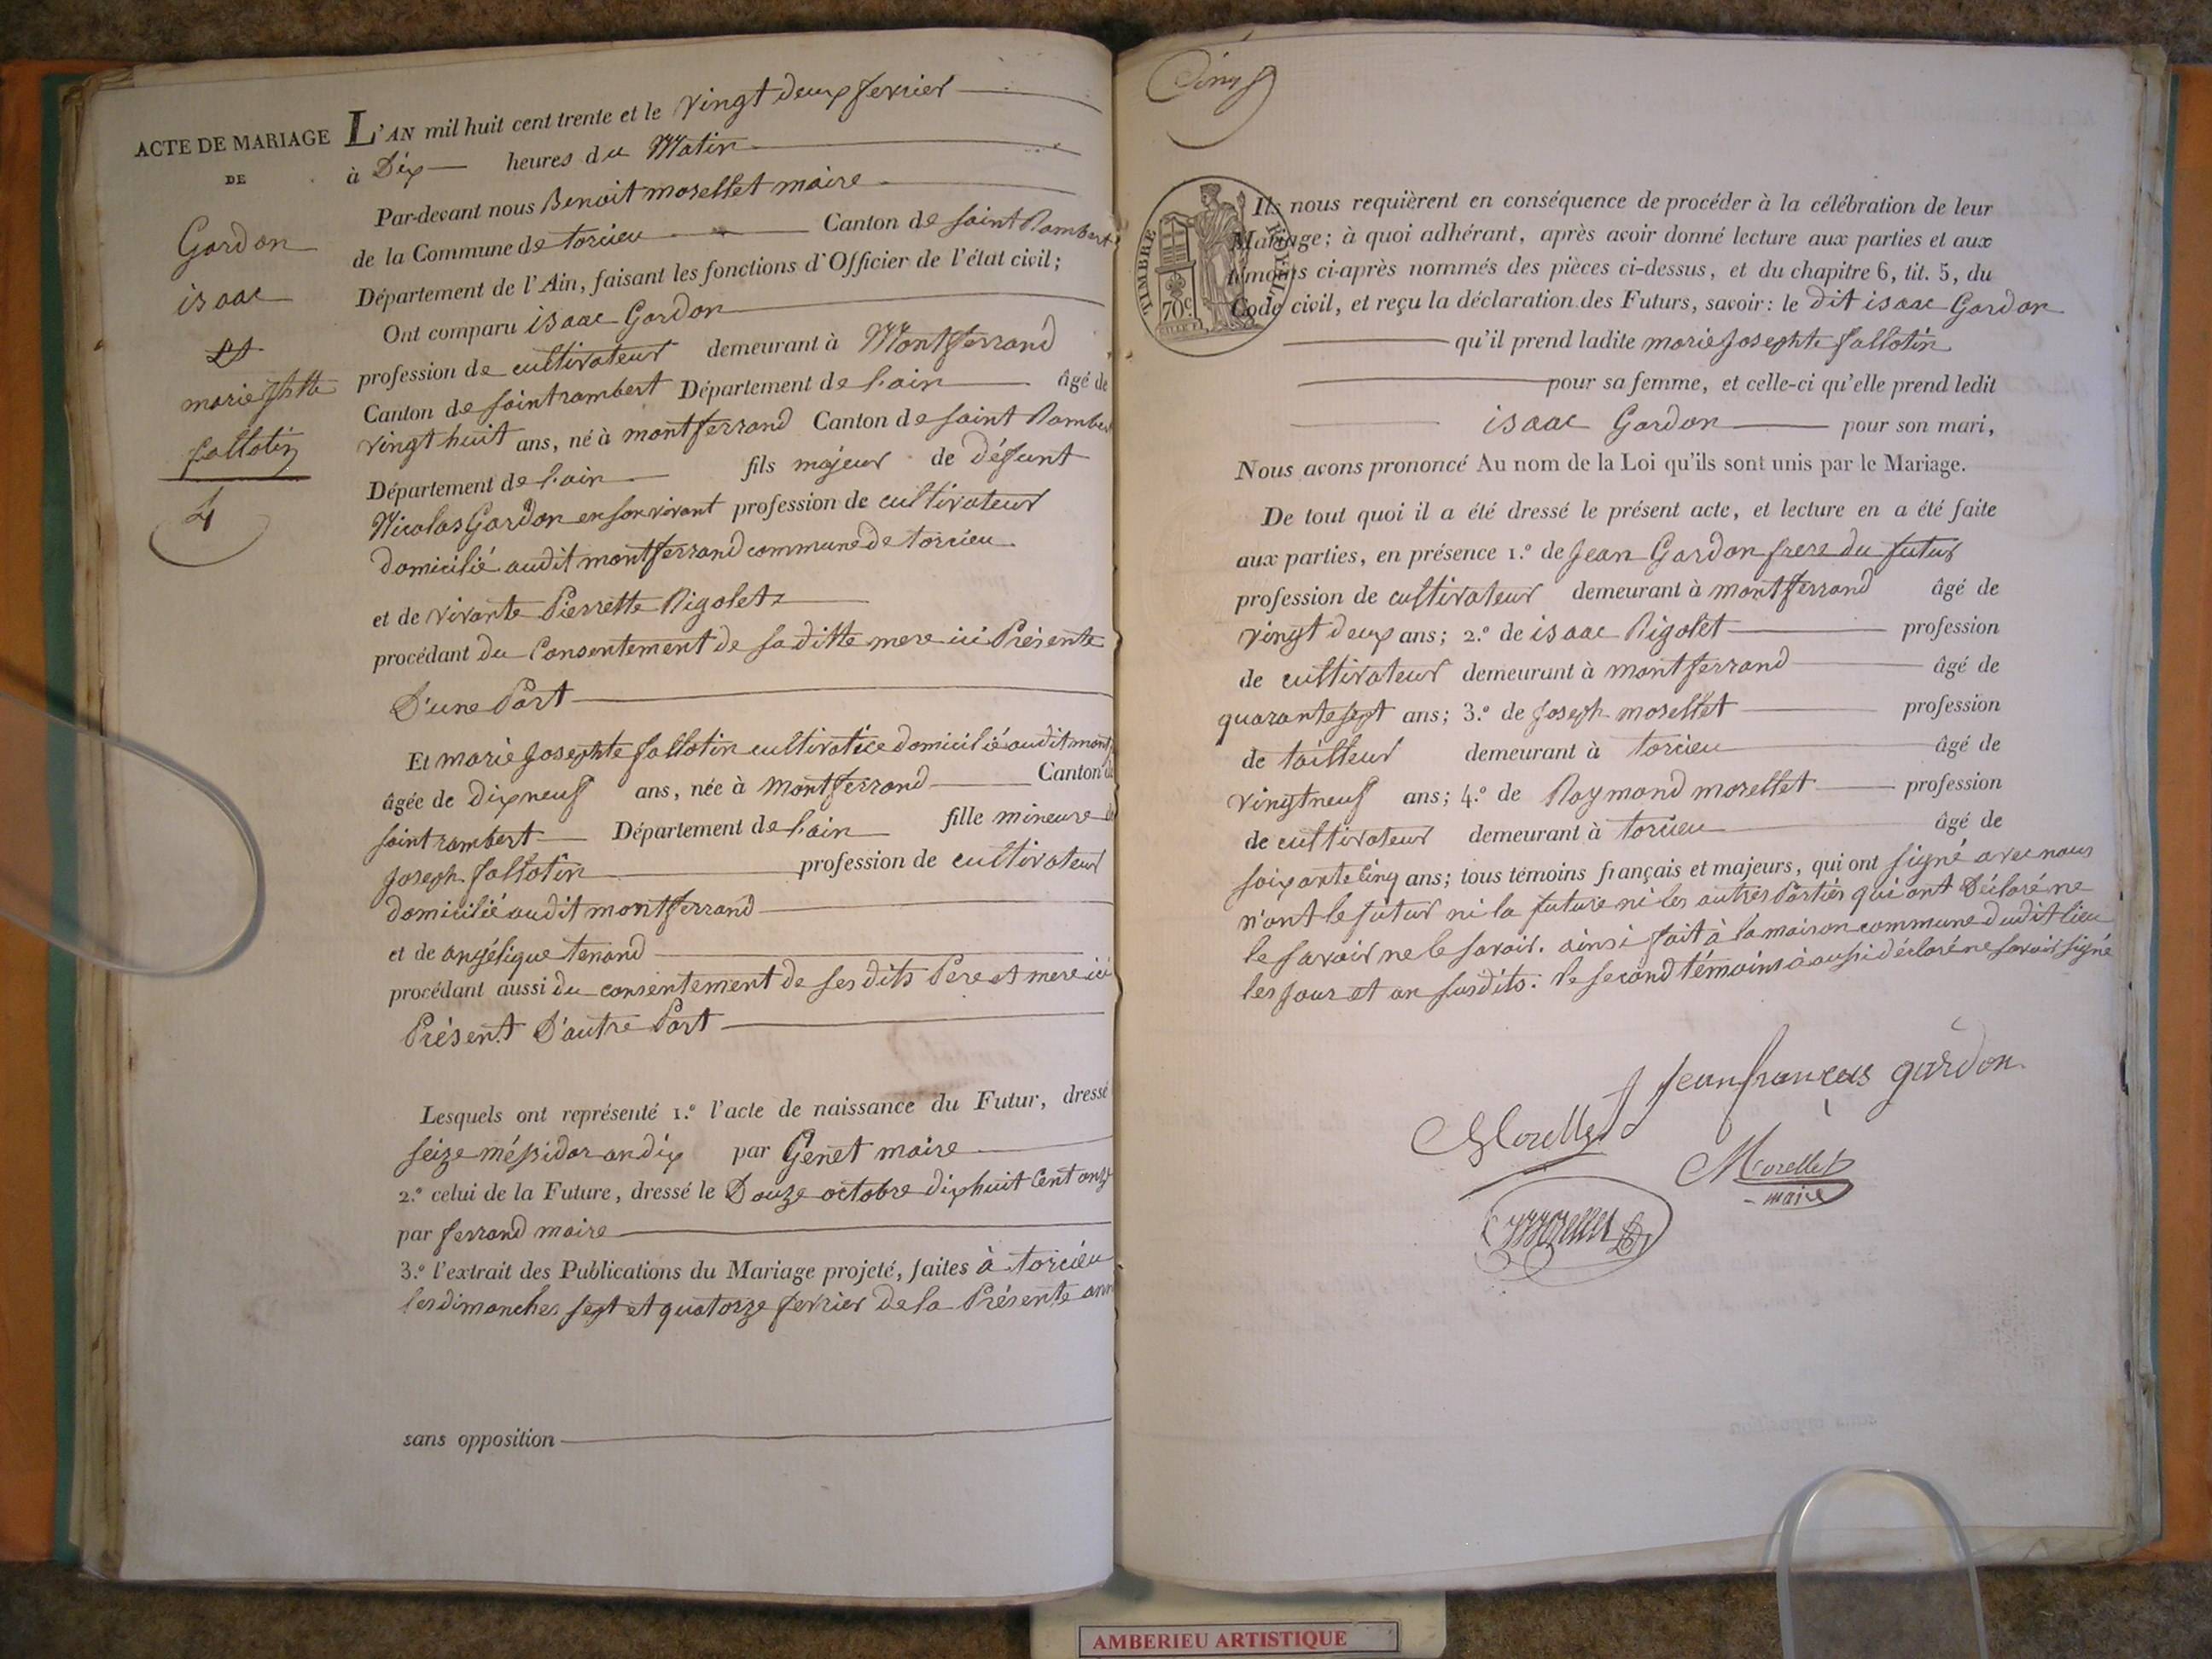 ACTE DE MARIAGE
DE
Gardon
isaac
et
marie jphte
fallotin
4
L'AN mil huit cent trente et le vingt deux fevrier
à Dix heures du Matin
Par-devant nous Benoit morellet maire
de la Commune de torcieu Canton de saint Rambert
Département de l'Ain, faisant les fonctions d'Officier de l'état civil;
Ont comparu isaac Gardon
profession de cultivateur demeurant à Montferrand
Canton de saint rambert Département de l'ain âgé de
vingt huit ans, né à montferrand Canton de saint Ramber
Département de l'ain fils majeur de défunt
Nicolas Gardon en son vivant profession de cultivateur
domicilié audit montferrand commune de torcieu
et de vivante Pierrette Rigolet
procédant du Consentement de sa ditte mere ici Présente
D'une Part
Et marie josephte fallotin cultivatice domicilié audit mont
âgée de dix neuf ans, née à montferrand Canton de
saint rambert Département de l'ain fille mineure de
joseph fallotin profession de cultivateur
domicilié audit montferrand
et de angélique tenand
procédant aussi du consentement de ses dits Pere et mere ici
Présent D'autre Part
Lesquels ont représenté 1.º l'acte de naissance du Futur, dressé
seize méssidor an dix par Genet maire
2.º celui de la Future, dressé le Douze octobre dix huit Cent onze
par ferrand maire
3.º l'extrait des Publications du Mariage projeté, faites à torcieu
les dimanches sept et quatorze fevrier de la Présente ann
sans opposition
Cinq
TIMBRE ROYAL
70c
Ils nous requièrent en conséquence de procéder à la célébration de leur
Mariage; à quoi adhérant, après avoir donné lecture aux parties et aux
témoins ci-après nommés des pièces ci-dessus, et du chapitre 6, tit. 5, du
Code civil, et reçu la déclaration des Futurs, savoir: le dit isaac Gardon
qu'il prend ladite marie josephte fallotin
pour sa femme, et celle-ci qu'elle prend ledit
isaac Gardon pour son mari,
Nous avons prononcé Au nom de la Loi qu'ils sont unis par le Mariage.
De tout quoi il a été dressé le présent acte, et lecture en a été faite
aux parties, en présence 1.º de jean Gardon frere du futur
profession de cultivateur demeurant à montferrand âgé de
vingt deux ans; 2.º de isaac Rigolet profession
de cultivateur demeurant à montferrand âgé de
quarante sept ans; 3.º de joseph morellet profession
de tailleur demeurant à torcieu âgé de
vingt neuf ans; 4.º de Raymond morellet profession
de cultivateur demeurant à torcieu âgé de
soixante cinq ans; tous témoins français et majeurs, qui ont signé avec nous
n'ont le futur ni la future ni les autres Parties qui ont Déclaré ne
le savoir ne le savoir. ainsi fait à la maison commune dudit lieu
les jour et an susdits: le second témoins à aussi déclaré ne savoir signé
jean francois gardon
Morellet
Morellet
maire
Morellet
AMBERIEU ARTISTIQUE